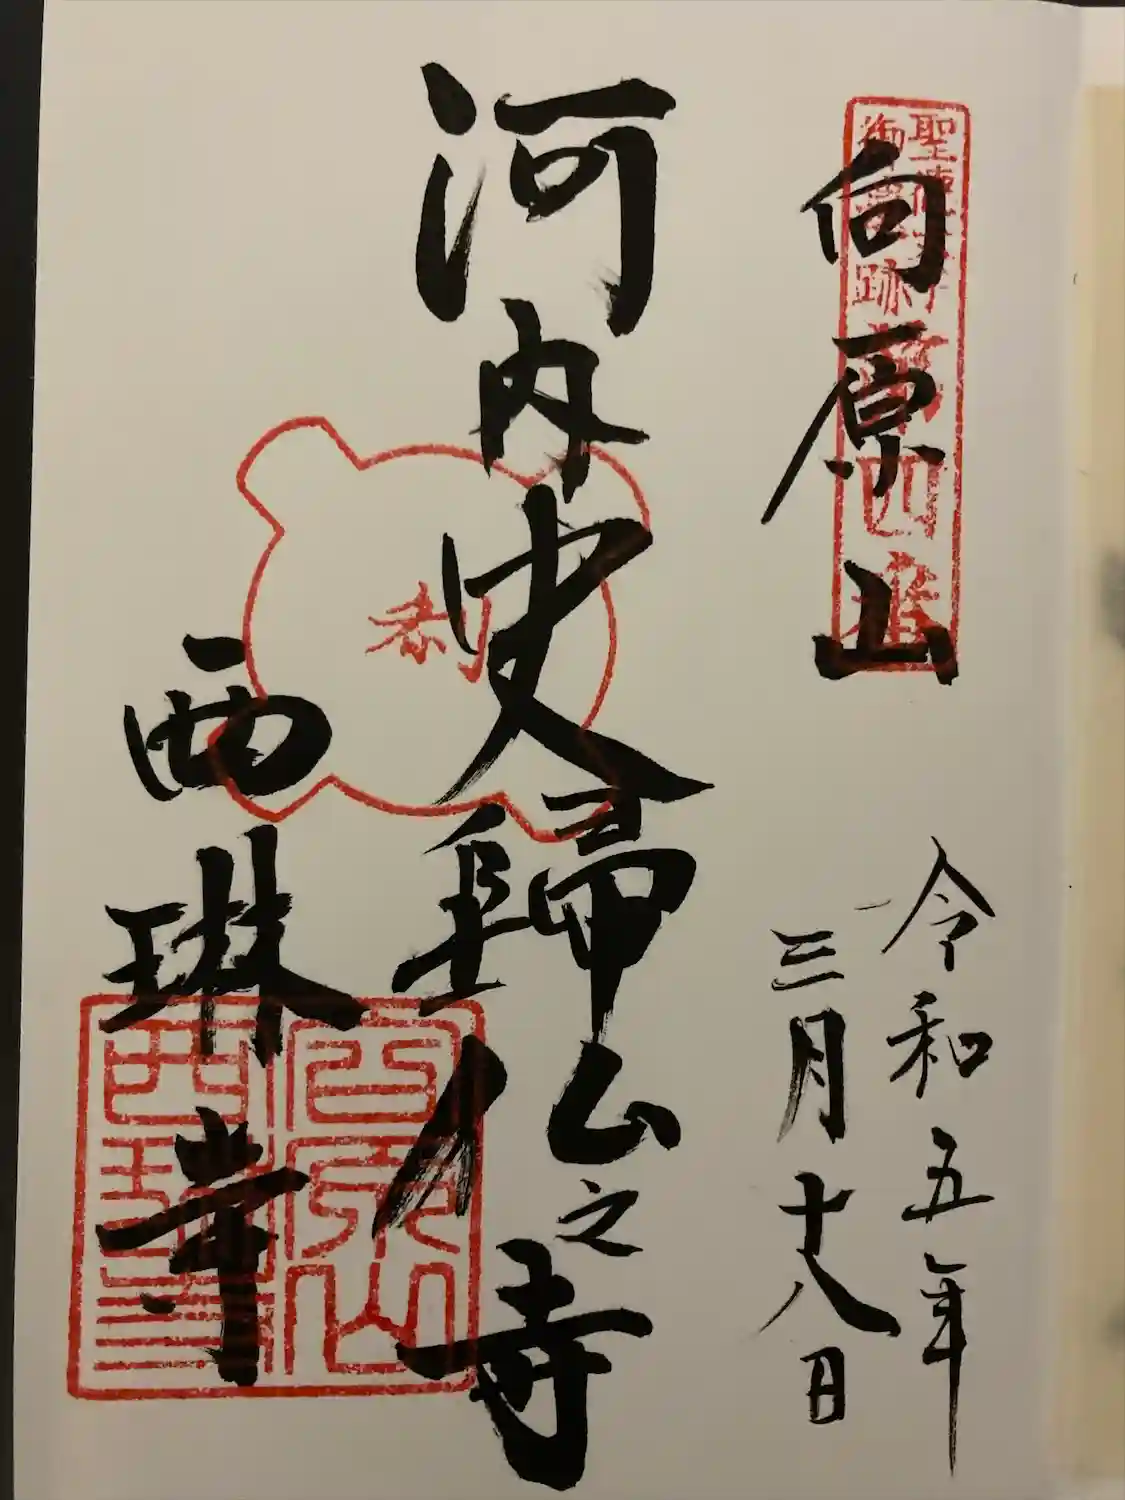 聖徳太子
御遺跡
第四番
向原山
令和五年
三月十八日
河内史歸仏之寺
西琳寺
向原山
西琳寺